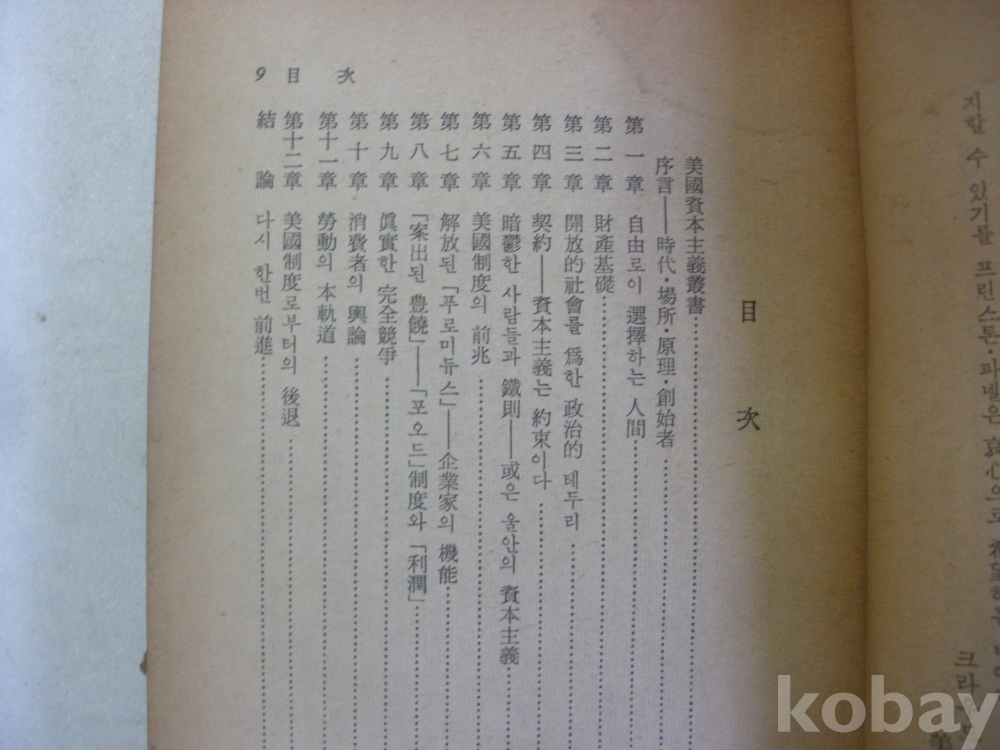 지할 수 있기를 프린스톤·파넬은 衷心으로
크라
目次
美國資本主義叢書
序言——時代·場所·原理·創始者
第一章 自由로이 選擇하는 人間
第二章 財產基礎
第三章 開放的社會를 爲한 政治的 테두리
第四章 契約——資本主義는 約束이다
第五章 暗鬱한 사람들과 鐵則——或은 울안의 資本主義
第六章 美國制度의 前兆
第七章 解放된 「푸로미듀스」——企業家의 機能
第八章 「案出된 豊饒」——「포오드」制度와 「利潤」
第九章 眞實한 完全競爭
第十章 消費者의 輿論
第十一章 勞動의 本軌道
第十二章 美國制度로부터의 後退
結論 다시 한번 前進
9 目次
kobay